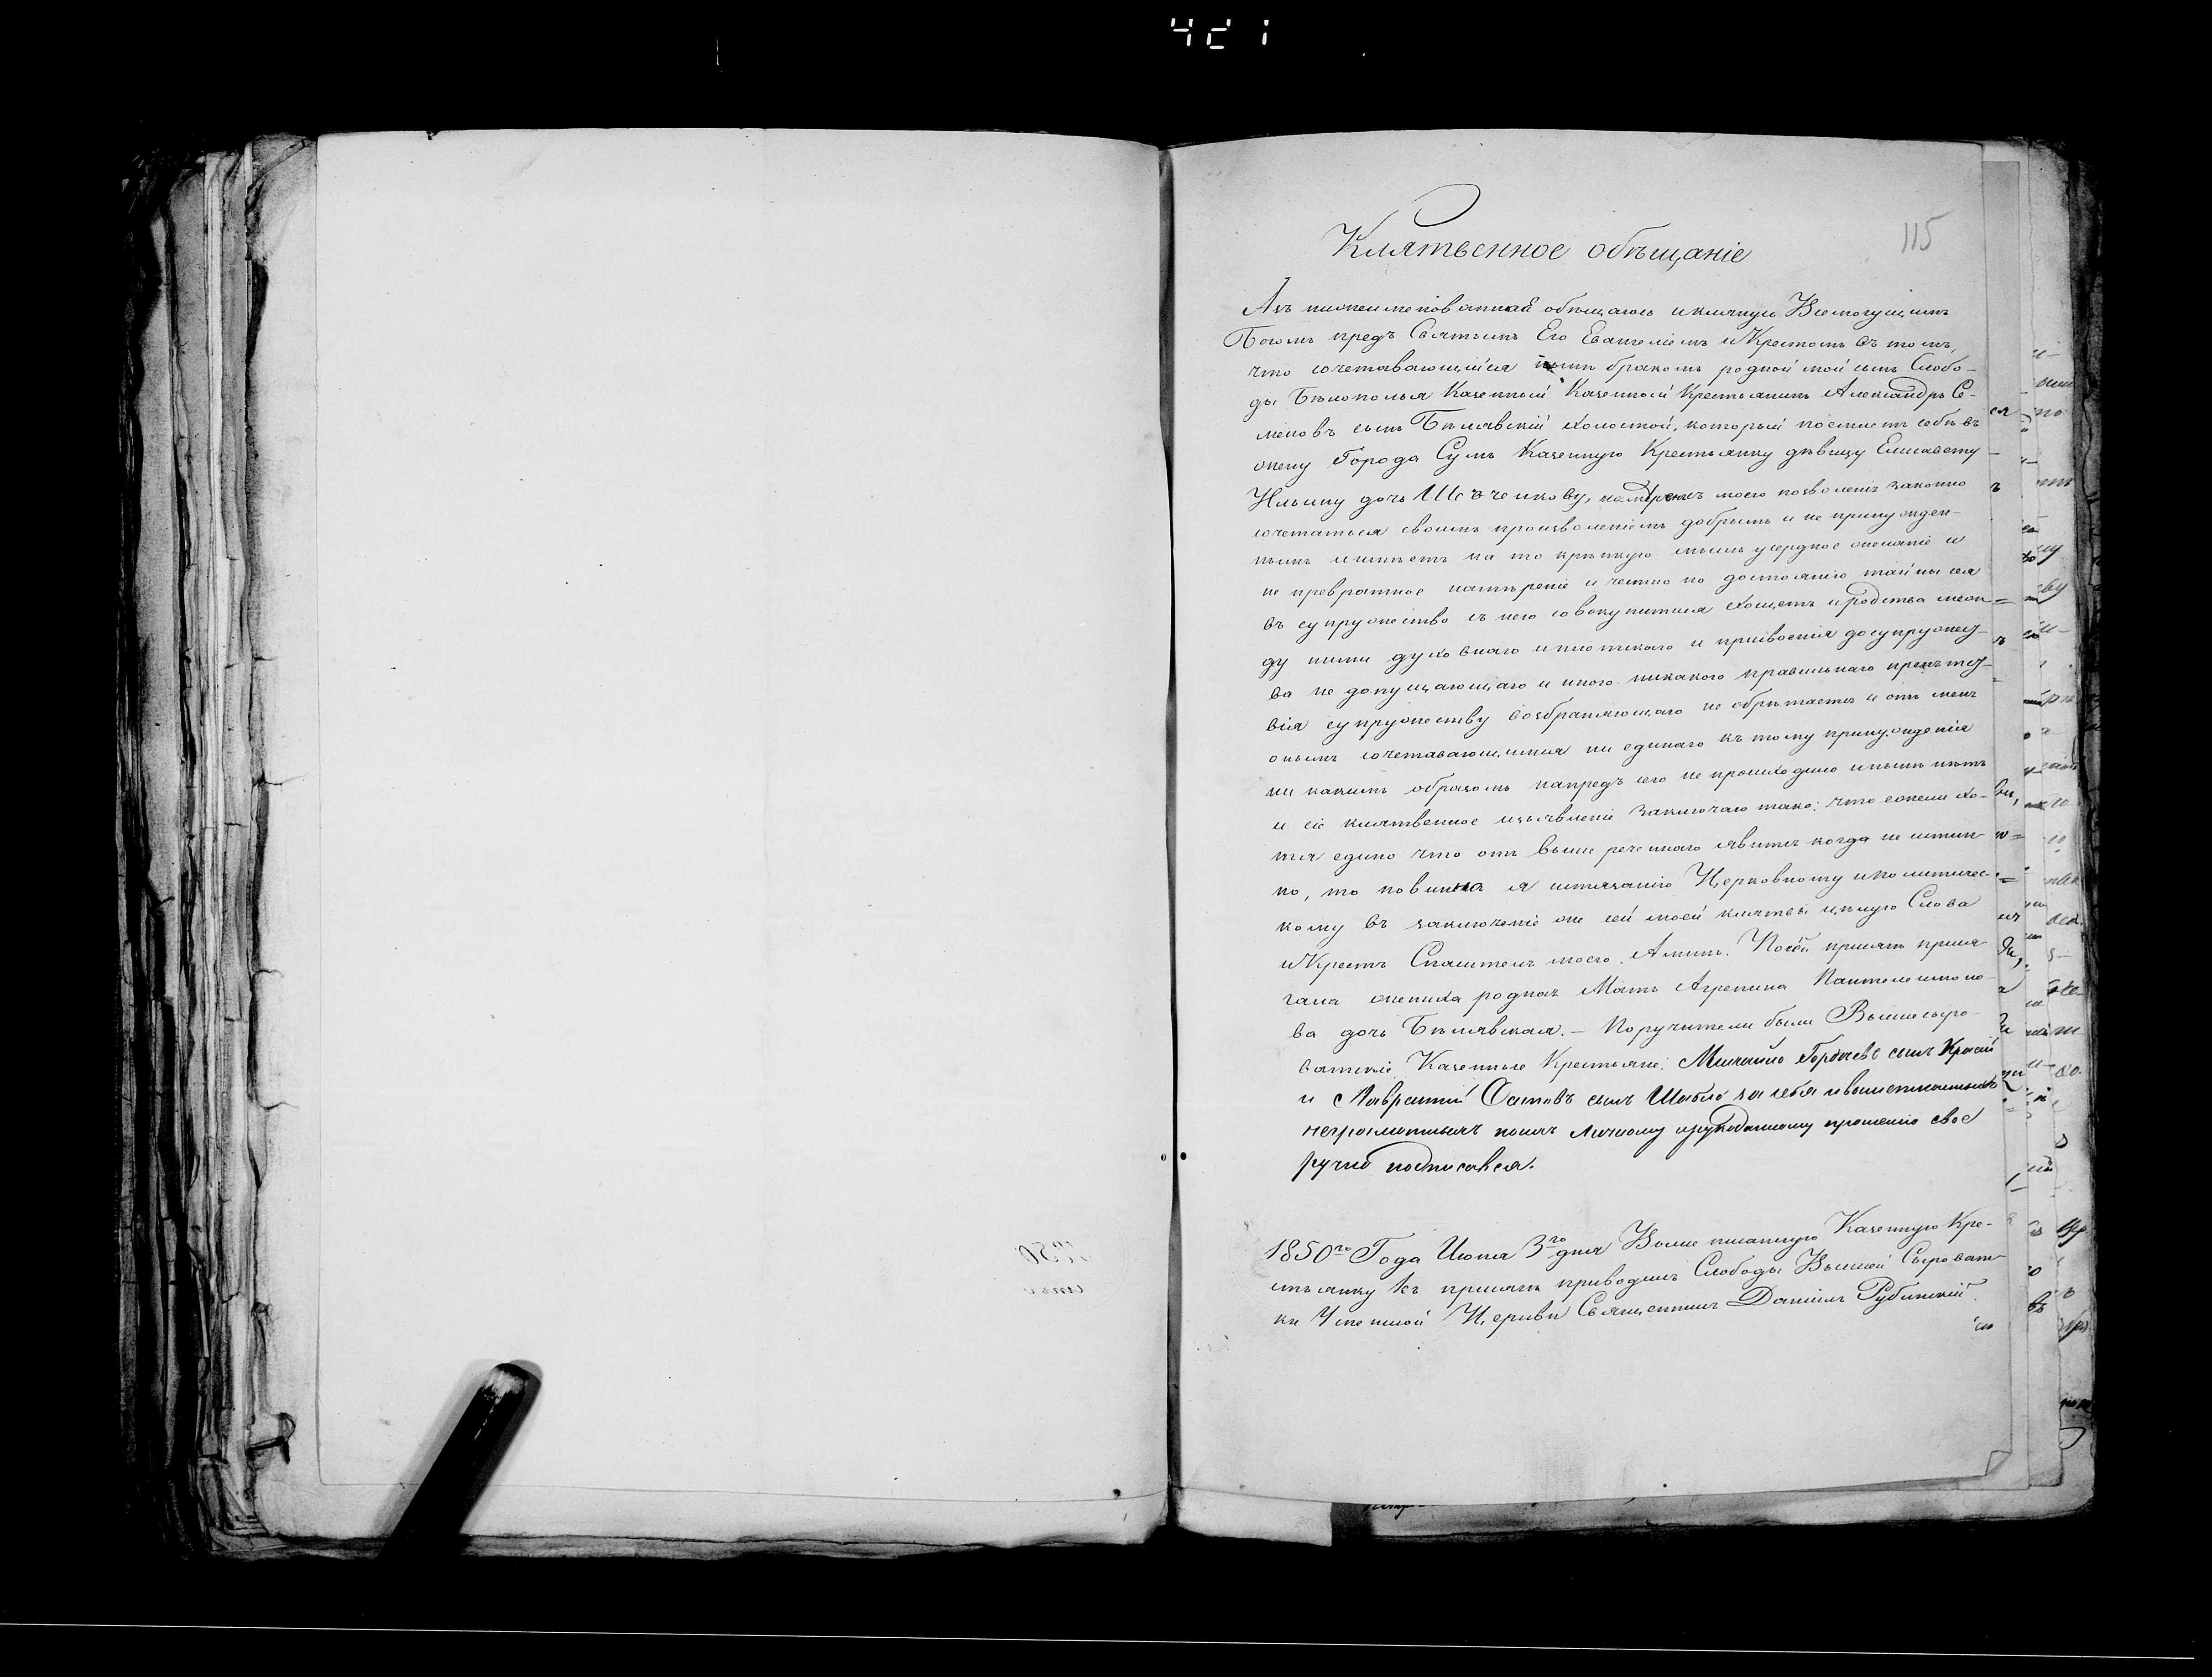 421
115
Клятвенное обѣщаніе
Азъ нижеименованная обѣщаюсь и клянусь Всемогущимъ
Богомъ предъ Святымъ Его Евангеліемъ и Крестомъ въ томъ,
что сочетавающійся бракомъ родной мой сынъ Слобо-
ды Бѣлополья Казенной Казенной Крестьянинъ Александръ Се-
меновъ сынъ Бѣлявскій холостой, который поемлетъ себѣ въ
жену Города Сумъ Казенную Крестьянку дѣвицу Елисавету
Ильину дочь Шевченкову, моего позволенъ законно
сочетаться своимъ произволеніемъ добрымъ и не принужден-
нымъ и имѣетъ на то крѣпкую мысль усердное желаніе и
не превратное намѣреніе и чесно по достоянію тайны сея
въ супружество съ нею совокупитися хощетъ и родства меж-
ду ними духовнаго и плотскаго и присвоенія до супружес-
ва не допущающаго и иного никакого правильнаго препятст-
вія супружеству возбраняющаго не обрѣтается и отъ мене
онымъ сочетавающимся ни единаго къ тому принужденія
ни какимъ образомъ напредъ сего не происходило и нынѣ нѣтъ
и сіе клятвенное изъявленіе заключаю тако: что ежели хо-
тя едино что отъ выше реченнаго явится когда не истин-
но, то повинна я истязанію Церковному и политичес-
кому въ заключеніе же сей моей клятвы цѣлую Слова
и Крестъ Спасителя моего. Аминь. По сей присягѣ прися-
гала жениха родная Мать Агрепина Пантелеимоно-
ва дочь Бѣлявская. — Поручители были Вышесыро-
ватскіе Казенные Крестьяне: Михайло Гордѣевъ сынъ
и Лаврентій сынъ Шабло за себя и вышеписанныхъ
неграмотныхъ личному и рукоданному прошенію свое
ручно подписался.
1850го Года Июня 3го дня Выше писанную Казенную Кре-
стьянку къ присягѣ приводилъ Слободы Вышней Сыроват-
ки Успенской Церкви Священникъ Даніилъ Рубинскій.